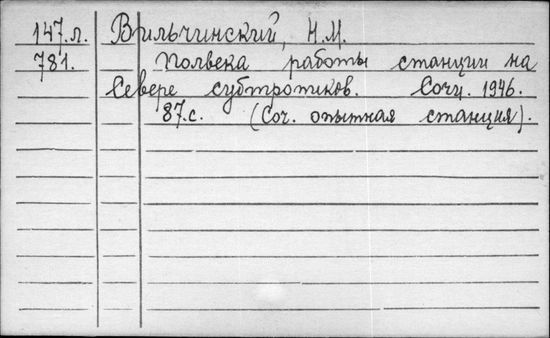 147.л. Вильчинский, Н.М.
781. Полвека работы станции на
Севере субтропиков. Сочи. 1946.
87.с. (Соч. опытная станция).